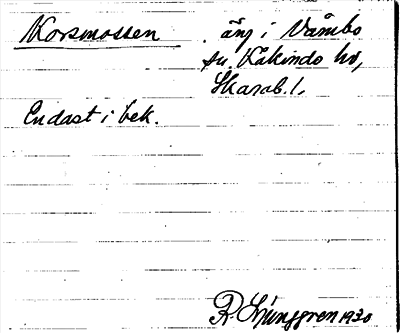 Korsmossen . äng i Våmbo
sn. Kåkinds hd,
Skarab. l.
Endast i bek.
R. Ljunggren 1930